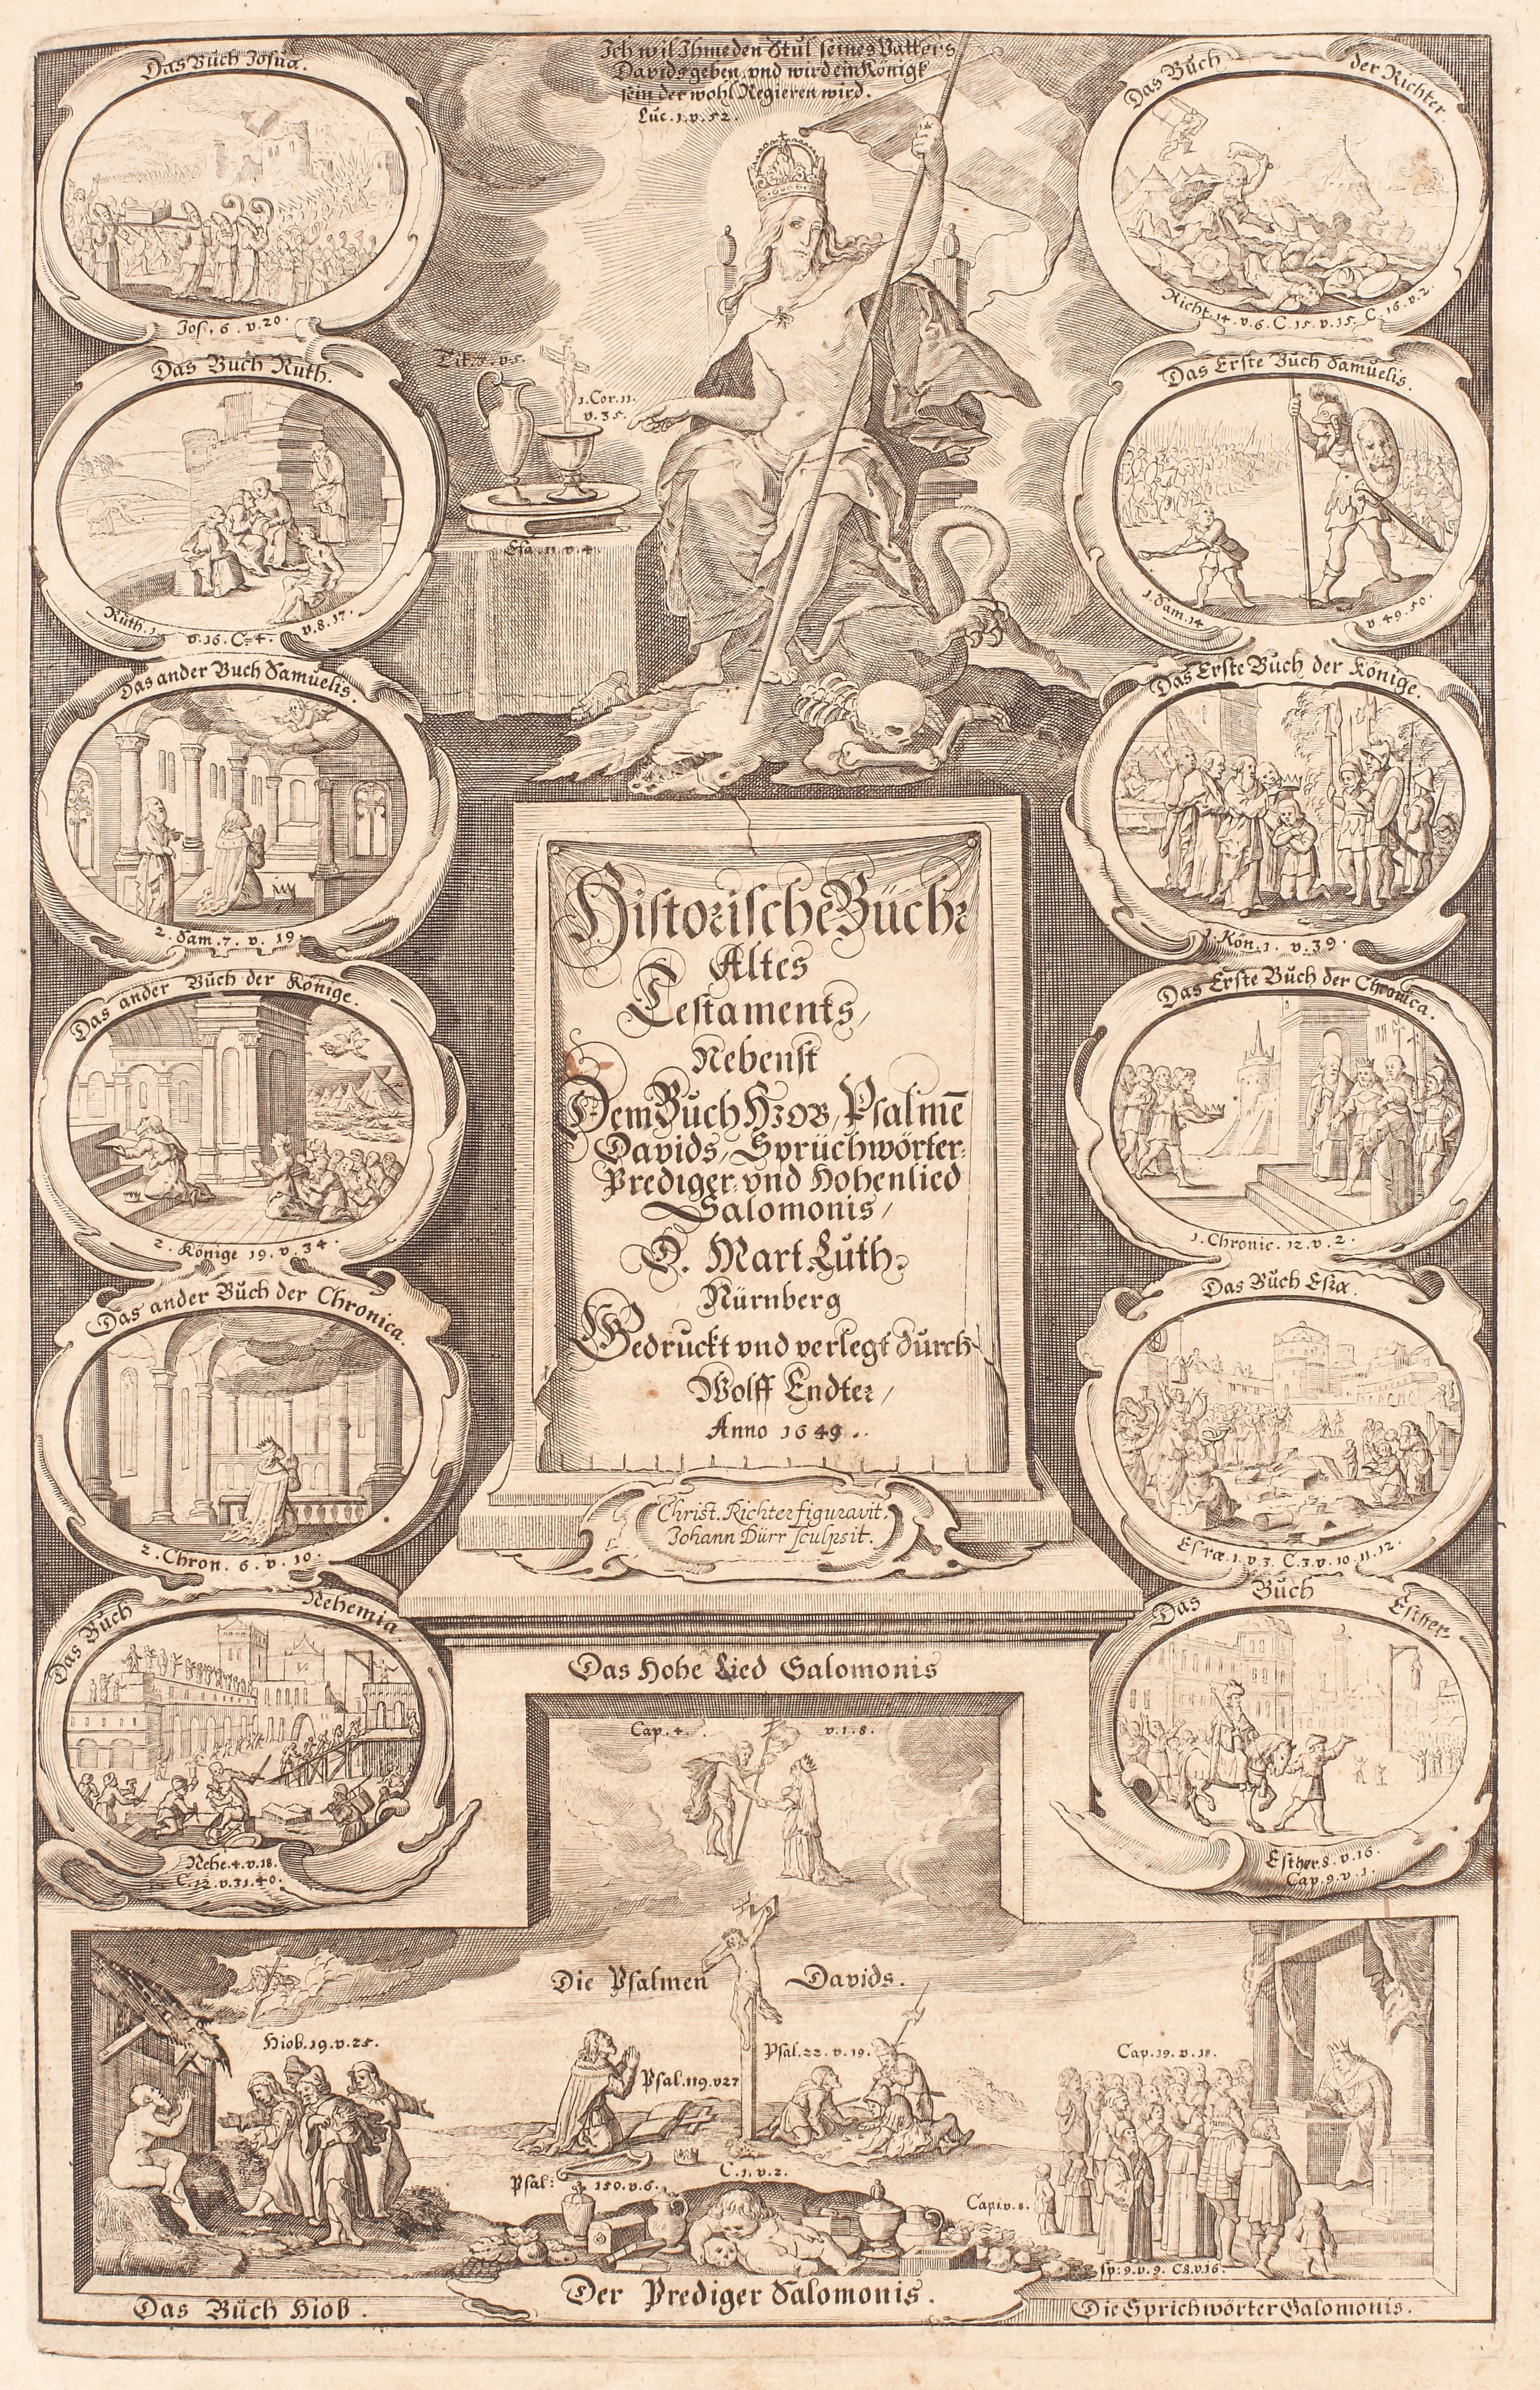 Ich wil Ihme den Stul seines Vatters
Davids geben, vnd wird ein Königk
sein der wohl Regieren wird.
Luc. 1. v. 52.
Das Buch Josua.
Jos. 6. v. 20.
Das Buch der Richter.
Richt. 14. v. 6. C. 15. v. 15. C. 16. v. 2.
Tit. v. 5.
1. Cor. 11.
v. 35.
Esa. 11. v. 4.
Das Buch Ruth.
Ruth. 1. v. 16. C. 4. v. 8. 17.
Das Erste Buch Samuelis.
1. Sam. 14 v 49. 50.
Das ander Buch Samuelis.
2. Sam. 7. v. 19.
Das Erste Buch der Könige.
1. Kön. 1. v. 39.
Das ander Buch der Könige.
2. Könige 19. v. 34.
Das Erste Buch der Chronica.
1. Chronic. 12. v. 2.
Das ander Buch der Chronica.
2. Chron. 6. v. 10.
Das Buch Esra.
Esræ. 1. v. 3. C. 3. v. 10. 11. 12.
Das Buch Nehemia.
Nehe. 4. v. 18.
C. 12. v. 31. 40.
Das Buch Esther.
Esther. 8. v. 16.
Cap. 9. v. 1.
Historische Bücher
Altes
Testaments,
Nebenst
Dem Buch Hiob, Psalmē
Davids, Sprüchwörter
Prediger, vnd Hohenlied
Salomonis,
D. Mart. Luth.
Nürnberg
Gedruckt vnd verlegt durch
Wolff Endter,
Anno 1649.
Christ. Richter figuravit.
Johann Dürr sculpsit.
Das Hohe Lied Salomonis
Cap. 4. v. 1. 8.
Die Psalmen Davids.
Hiob. 19. v. 25.
Psal. 119. v 27
Psal. 22. v. 19.
Cap. 19. v. 18.
Psal: 150. v. 6.
C. 1. v. 2.
Cap. 1. v. 8.
sp: 9. v. 9. C 8. v. 16.
Das Buch Hiob.
Der Prediger Salomonis.
Die Sprichwörter Salomonis.